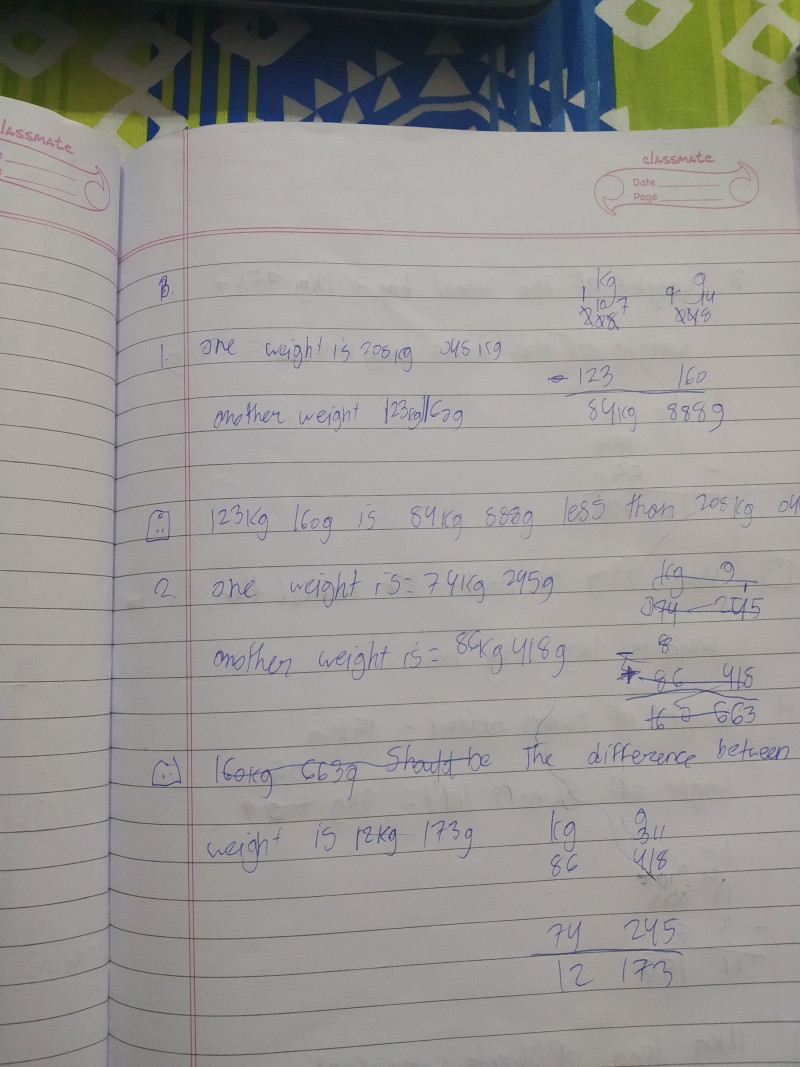 classmate
classmate
Date
Page
B.
kg g
1 10 7 9 14
208 048
1. One weight is 208kg 048 kg
- 123 160
another weight 123kg 160g 84kg 888g
∴ 123kg 160g is 84kg 888g less than 208kg 04
2. One weight is = 74kg 245g kg g
74 245
another weight is = 86kg 418g
86 418
160 663
∴ 160kg 663g should be The difference between
weight is 12kg 173g kg g
3 11
86 418
74 245
12 173